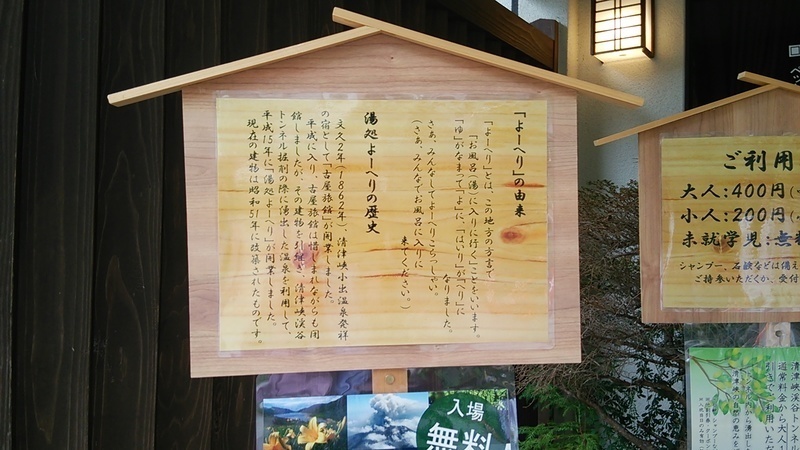 「よーへり」の由来
「よーへり」とは、この地方の方言で
「お風呂(湯)に入りに行く」ことをいいます。
「ゆ」がなまって「よ」に、「はいり」が「へり」に
なりました。
さあ、みんなしてよーへりこらっしゃい。
(さあ、みんなでお風呂に入りに
来てください。)
湯処よーへりの歴史
文久2年(1862年)、清津峡小出温泉発祥
の宿として「古屋旅館」が開業しました。
平成に入り、古屋旅館は惜しまれながらも閉
館しましたが、その建物を引継ぎ、清津峡渓谷
トンネル掘削の際に湧出した温泉を利用して、
平成15年に「湯処よーへり」が開業しました。
現在の建物は昭和51年に改築されたものです。
ご利用
大人:400円
小人:200円
未就学児:無料
シャンプー、石鹸などは備え
ご持参いただくか、受付
入場
無料
清津峡渓谷トンネル
通常料金から大人1
引きでご利用いただ